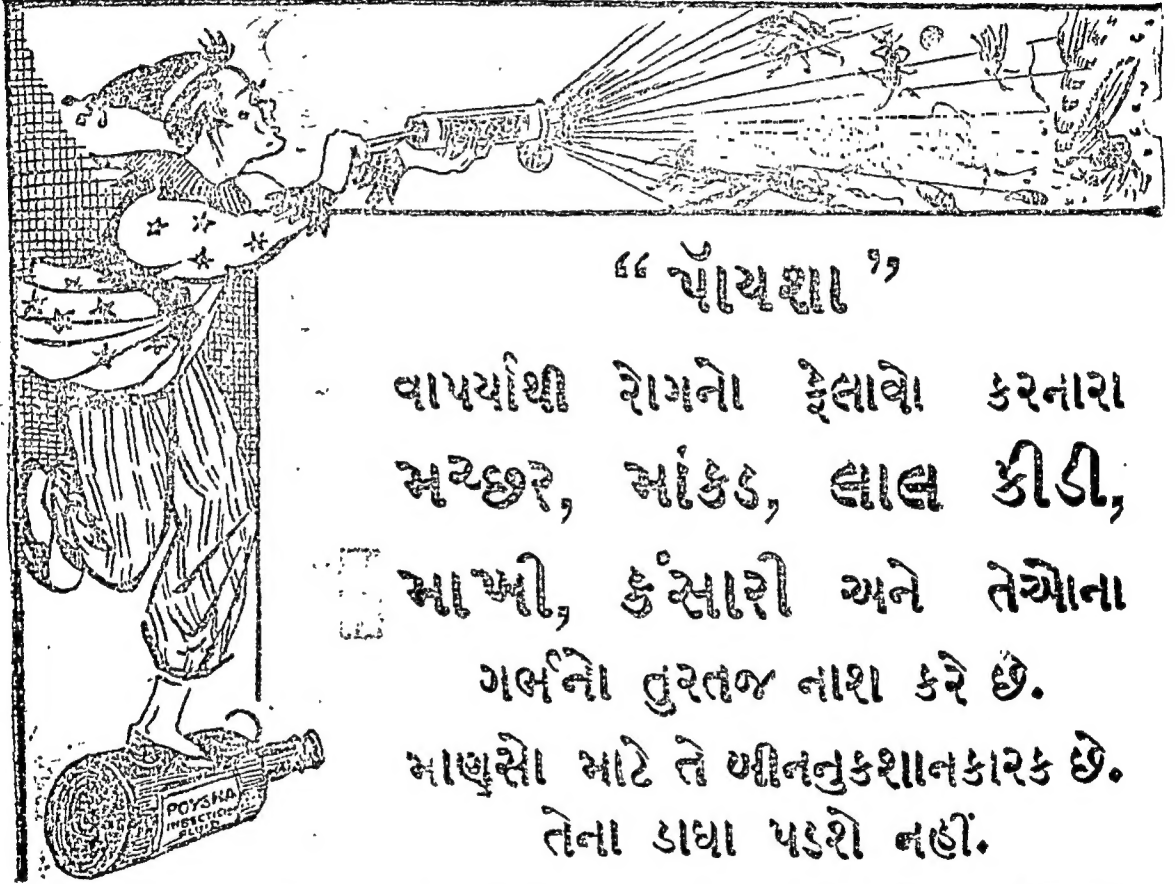 “ પૉયશા ”
વાપર્યાથી રોગનો ફેલાવો કરનારા
મચ્છર, માંકડ, લાલ કીડી,
માખી, કંસારી અને તેઓના
ગર્ભનો તુરતજ નાશ કરે છે.
માણસો માટે તે બીનનુકશાનકારક છે.
તેના ડાઘા પડશે નહીં.
POYSHA
FLUID